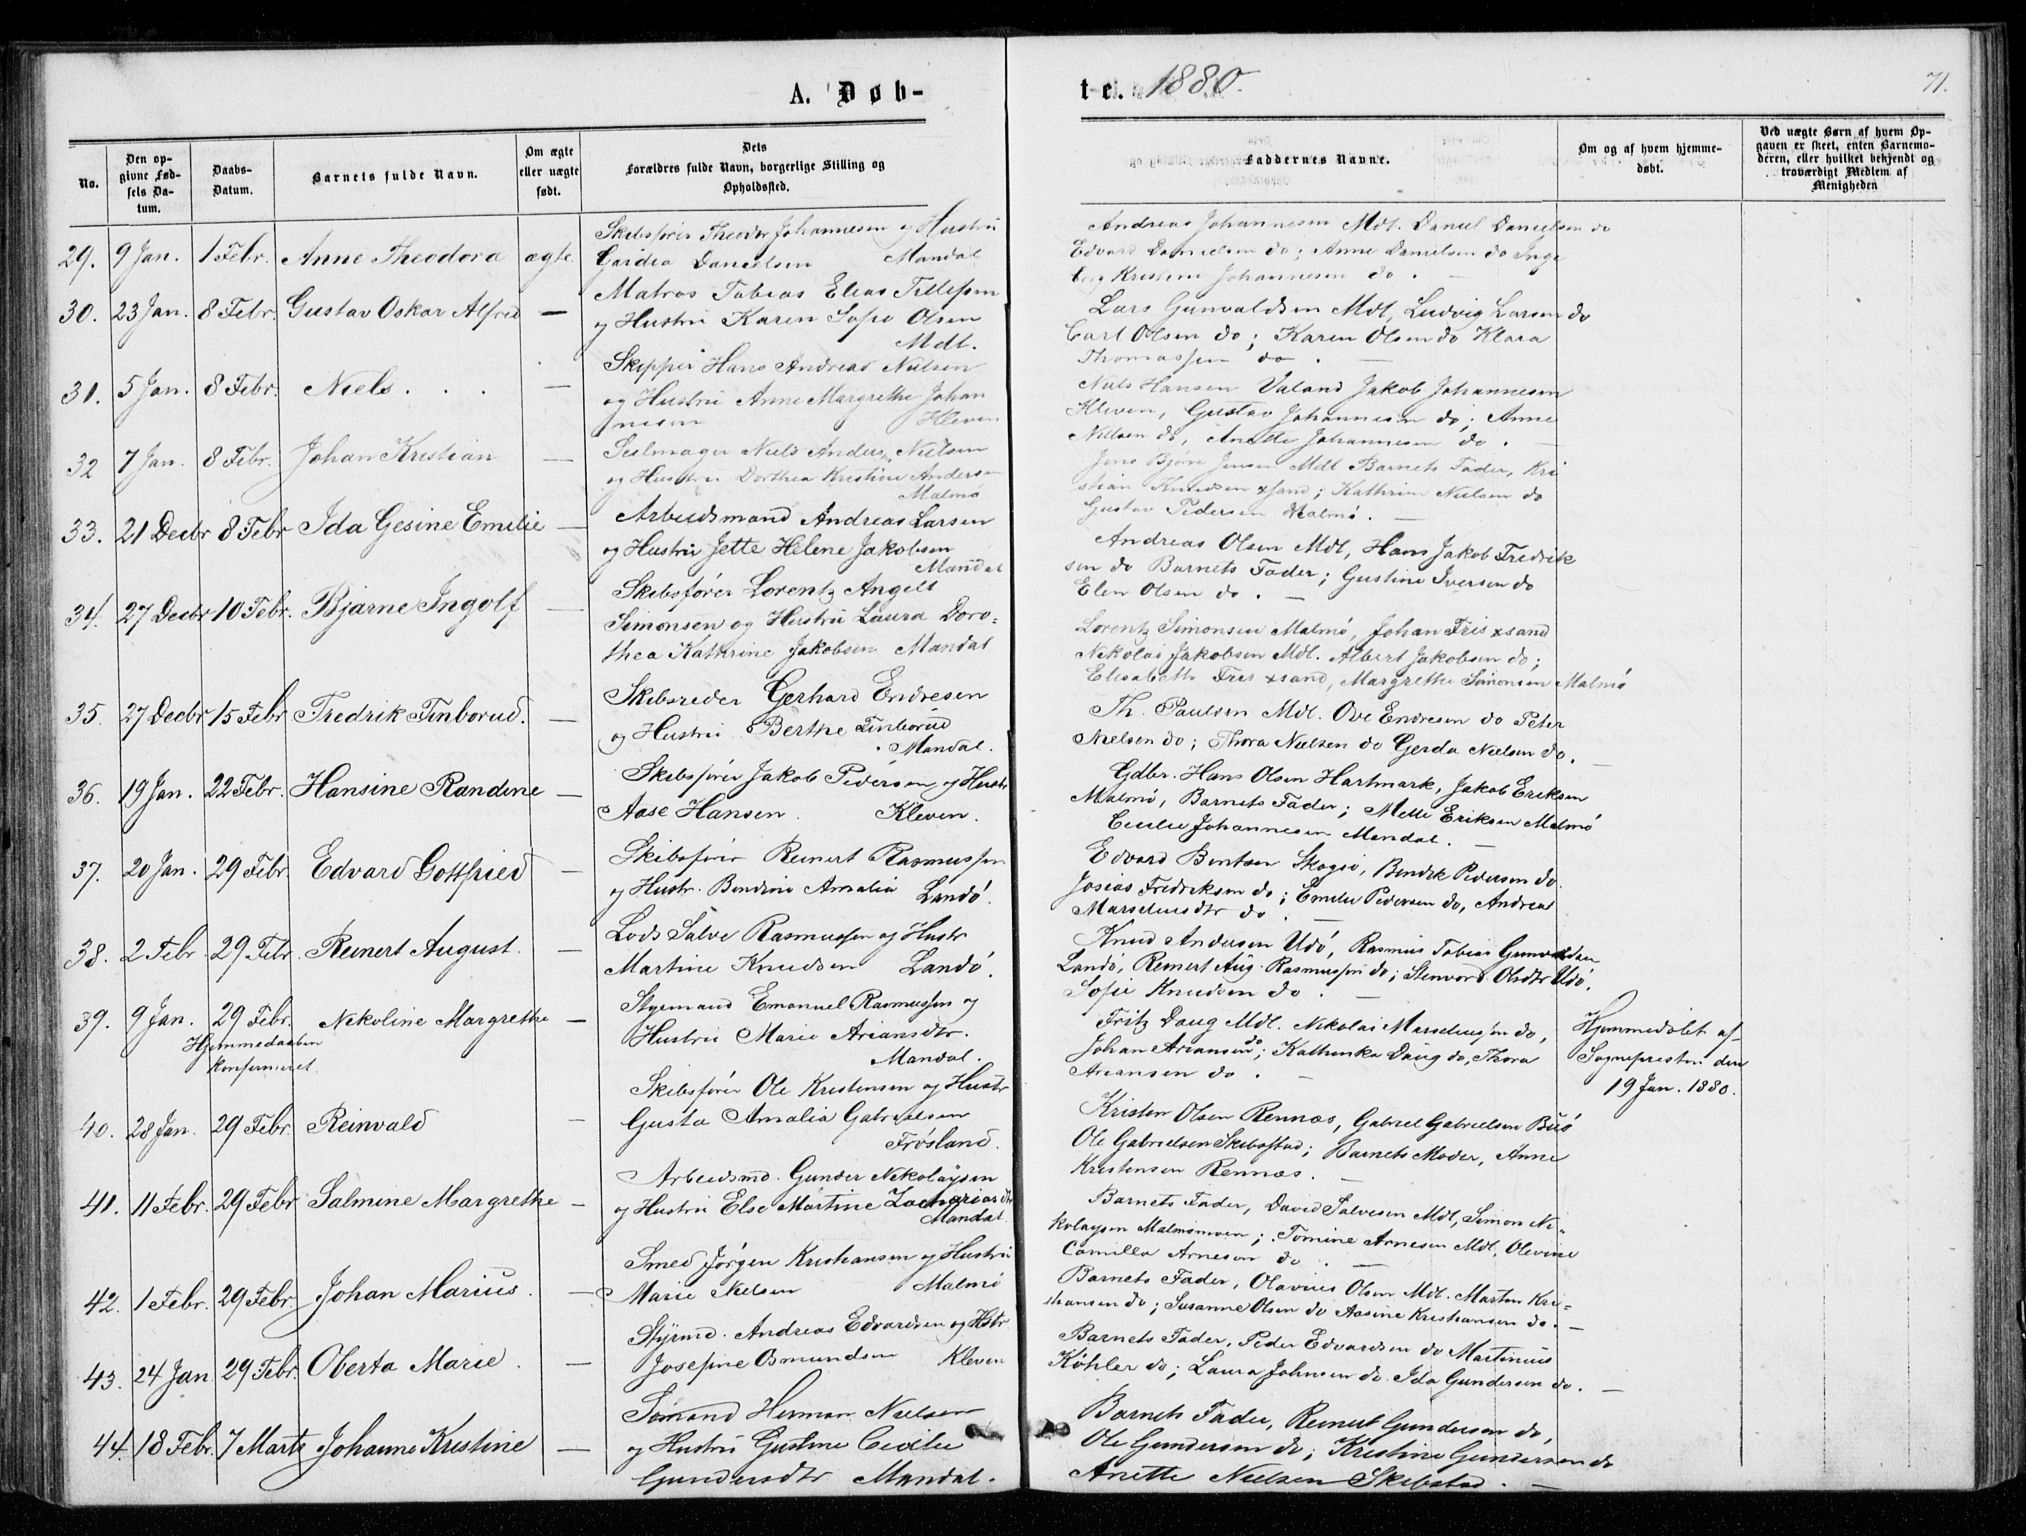 A. Døb-
te. 1880.
71.
No.
Den opgivne Fødsels Datum.
Daabs-Datum.
Barnets fulde Navn.
Om ægte eller uægte født.
Dets Forældres fulde Navn, borgerlige Stilling og Opholdssted.
Faddernes Navne.
Om og af hvem hjemmedøbt.
Ved uægte Børn af hvem Opgaven er skeet, enten Barnemoderen, eller hvilket bekjendt og troværdigt Medlem af Menigheden
29. 9 Jan. 1 Febr. Anne Theodora ægte.
Skibsfører Theodor Johannesen og Hustru
Danielsen Mandal
Andreas Johannesen Mdl. Daniel Danielsen do
Edvard Danielsen do; Anne Danielsen do Inge
borg Kristine Johannesen do. —
30. 23 Jan. 8 Febr. Gustav Oskar Alfred —
Matros Tobias Elias Tellefsen
og Hustru Karen Sofie Olsen
Mdl.
Lars Gunvaldsen Mdl, Ludvig Larsen do
Carl Olsen do; Karen Olsen do Klara
Thomassen do. —
31. 5 Jan. 8 Febr. Niels. . . —
Skipper Hans Andreas Nielsen
og Hustru Anne Margrethe Johan
nesen Kleven
Niels Hansen Valand Jakob Johannesen
Kleven, Gustav Johannesen do; Anne
Nielsen do, Anette Johannesen do. —
32 7 Jan. 8 Febr. Johan Kristian —
Seilmager Niels Anders Nielsen
og Hustru Dorthea Kristine Andersen
Malmø
Jens Bjørn Jensen Mdl Barnets Fader, Kri
stian Knudsen xsand; Kathrine Nielsen do
Gustav Pedersen Malmø. —
33. 21 Decbr 8 Febr Ida Gesine Emilie —
Arbeidsmand Andreas Larsen
og Hustru Jette Helene Jakobsen
Mandal
Andreas Olsen Mdl, Hans Jakob Fredrik
sen do Barnets Fader; Gustine Iversen do
Elen Olsen do. —
34. 27 Decbr 10 Febr. Bjarne Ingolf —
Skibsfører Lorentz Angell
Simonsen og Hustru Laura Doro-
thea Kathrine Jakobsen Mandal
Lorentz Simonsen Malmø, Johan Friis xsand
Nikolai Jakobsen Mdl. Albert Jakobsen do;
Elisabeth Friis xsand, Margrethe Simonsen Malmø
35. 27 Decbr 15 Febr Fredrik Finborud. —
Skibsreder Gerhard Endresen
og Hustru Berthe Finborud
Mandal.
Th. Paulsen Mdl. Ove Endresen do Peter
Nielsen do; Thora Nielsen do Gerda Nielsen do. —
36. 19 Jan. 22 Febr. Hansine Randine —
Skibsfører Jakob Pedersen og Hustr
Aase Hansen. Kleven.
Gdbr. Hans Olsen Hartmark, Jakob Eriksen
Malmø, Barnets Fader; Mette Eriksen Malmø
Cecilie Johannesen Mandal. —
37. 20 Jan. 29 Febr. Edvard Gottfried —
Skibsfører Reinert Rasmussen
og Hustr. Bendine Amalia Landø.
Edvard Bentsen Skogsø, Bendik Pedersen do.
Josias Fredriksen do; Emilie Pedersen do, Andrea
Marseliusdtr do. —
38. 2 Febr. 29 Febr. Reinert August. —
Lods Salve Rasmussen og Hustr
Martine Knudsen Landø.
Knud Andersen Udø, Rasmus Tobias Gunvaldsen
Landø, Reinert Aug. Rasmussen do; Stenvor Olsdtr Udø,
Sofie Knudsen do. —
39. 9 Jan. 29 Febr. Nikoline Margrethe —
Hjemmedaaben
konfirmeret.
Styrmand Emanuel Rasmussen og
Hustru Marie Ariansdtr.
Mandal.
Fritz Daug Mdl. Nikolai Marseliussen do,
Johan Ariansen do; Kathinka Daug do, Thora
Ariansen do. —
Hjemmedøbt af
Sognepresten den
19 Jan. 1880.
40. 28 Jan. 29 Febr. Reinvald —
Skibsfører Ole Kristensen og Hustr
Gusta Amalia Gabrielsen
Frøsland.
Kristen Olsen Rennæs, Gabriel Gabrielsen Buø
Ole Gabrielsen Skibstad; Barnets Moder, Anne
Kristensen Rennæs. —
41. 11 Febr. 29 Febr Salmine Margrethe —
Arbeidsmd. Gunder Nikolaysen
og Hustru Else Martine Zachariasdtr
Mandal
Barnets Fader, David Salvesen Mdl, Simon Ni-
kolaysen Malmømoen; Tomine Arnesen Mdl, Olevine
Camilla Arnesen do. —
42. 1 Febr. 29 Febr. Johan Marius. —
Smed Jørgen Kristiansen og Hustru
Marie Kielsen Malmø
Barnets Fader, Olavius Olsen Mdl. Marten Kri-
stiansen do; Susanne Olsen do Aasine Kristiansen do. —
43. 24 Jan 29 Febr. Oberta Marie. —
Styrmd. Andreas Edvardsen og Hstr
Josefine Osmundsen Kleven
Barnets Fader, Peder Edvardsen do Martinius
Køhler do; Laura Johnsen do. Ida Gundersen do. —
44. 18 Febr. 7 Marts Johanne Kristine —
Sømand Herman Nielsen
og Hustru Gustine Cecilie
Gundersdtr Mandal.
Barnets Fader, Reinert Gundersen do,
Ole Gundersen do; Kristine Gundersen do
Anette Nielsen Skibstad. —